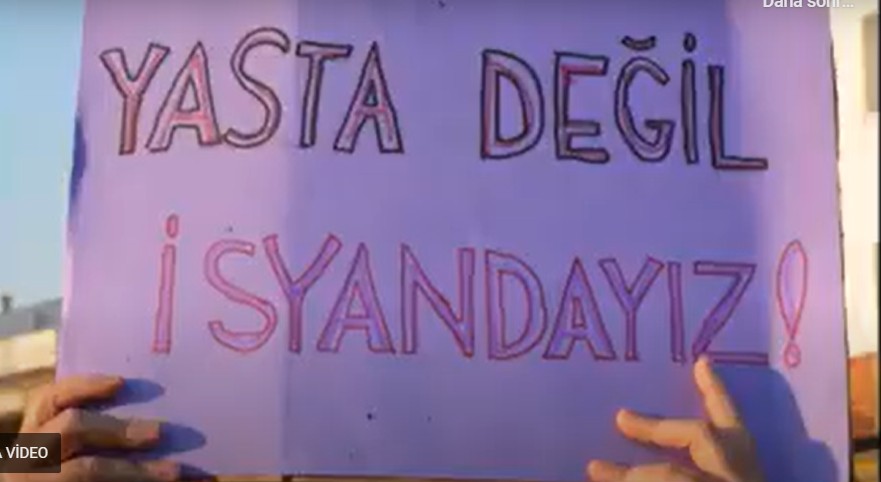 Daha sonr...
YASTA DEĞİL
İSYANDAYIZ!
A VİDEO